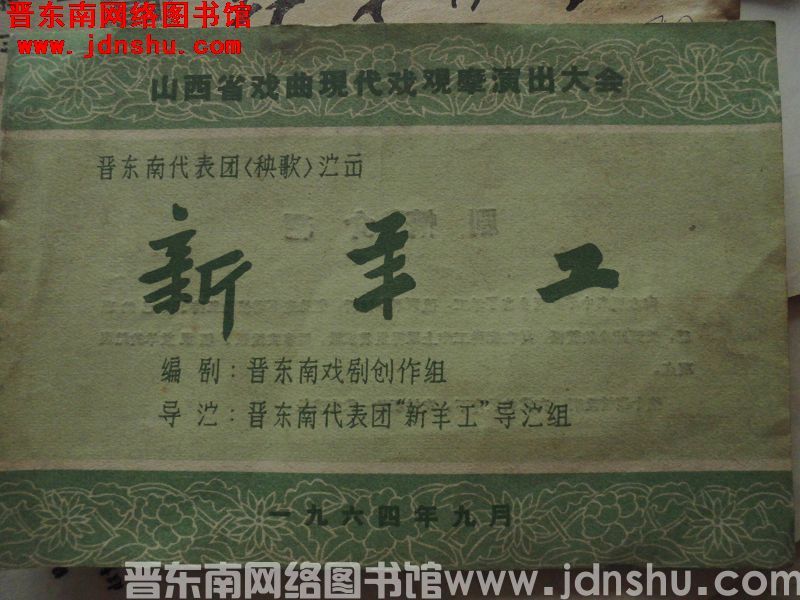 晋东南网络图书馆
www.jdnshu.com
山西省戏曲现代戏观摩演出大会
晋东南代表团〈秧歌〉氵㝉出
新羊工
编剧：晋东南戏剧创作组
导氵㝉：晋东南代表团“新羊工”导氵㝉组
一九六四年九月
晋东南网络图书馆www.jdnshu.com